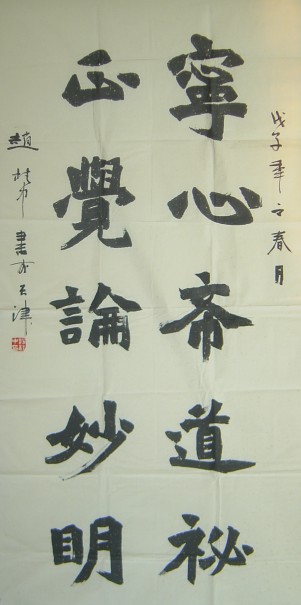 戊子年之春月
寧心斋道祕
正覺論妙明
趙
書於天津